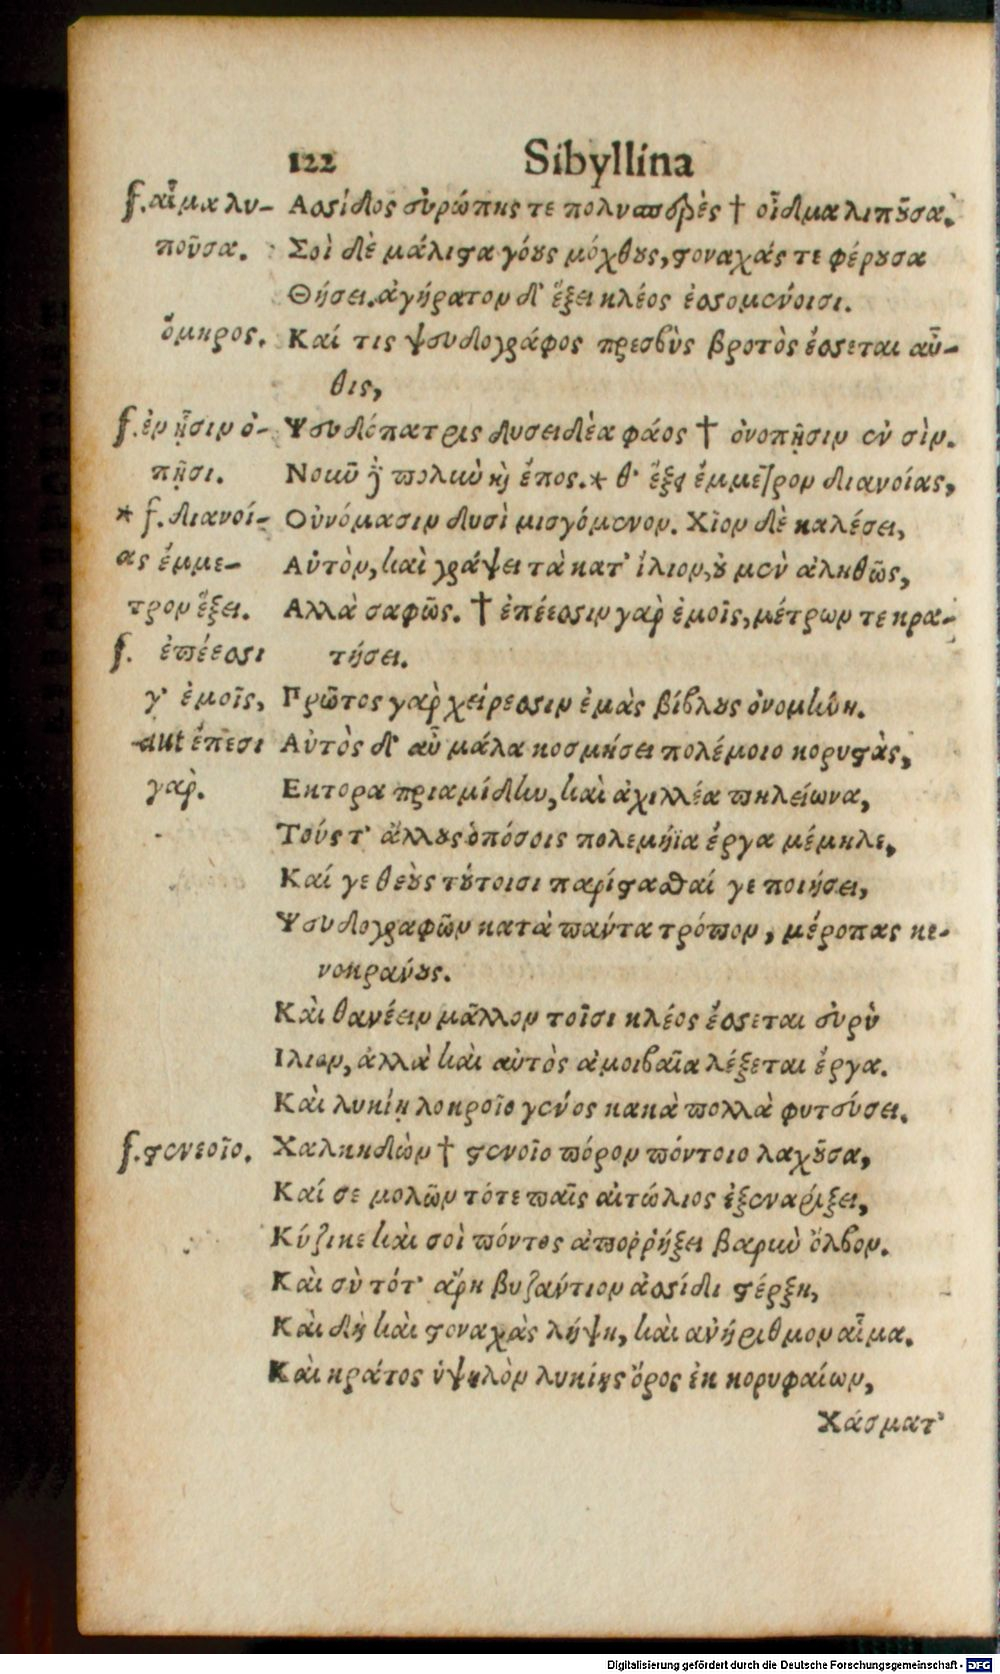 122 Sibyllina
f. αἷμα λυ- Ασίδος εὐρώπης τε πολυσπερὲς † οἶδμα λιποῦσα.
ποῦσα. Σοὶ δὲ μάλιστα γόους μόχθους, στοναχάς τε φέρουσα
Θήσει. ἀγήρατον δ' ἕξει κλέος ἐσσομένοισι.
ὅμηρος. Καί τις ψευδογράφος πρεσβὺς βροτὸς ἔσσεται αὖ-
θις,
f. ἐν ᾗσιν ὀ- Ψευδόπατρις δύσει δὲ φάος † ὀνοπῇσιν ἐν σὶν.
πῇσι. Νοῦν δὲ πολὺν καὶ ἔπος. * θ' ἕξει ἔμμετρον διανοίας,
* f. διανοί- Οὐνόμασιν δυσὶ μισγόμενον. Χῖον δὲ καλέσει,
ας ἔμμε- Αὑτὸν, καὶ γράψει τὰ κατ' ἴλιον, οὐ μὲν ἀληθῶς,
τρον ἕξει. Αλλὰ σαφῶς. † ἐπέεσσιν γαρ ἐμοῖς, μέτρων τε κρα-
f. ἐπέεσσι τήσει.
γ' ἐμοῖς, Πρῶτος γαρ χείρεσσιν ἐμὰς βίβλους ὀνομήνῃ.
aut ἔπεσι Αὐτὸς δ' αὖ μάλα κοσμήσει πολέμοιο κορυστὰς,
γαρ. Εκτορα πριαμίδην, καὶ ἀχιλλέα πηλείωνα,
Τούς τ' ἄλλους ὁπόσοις πολεμήϊα ἔργα μέμηλε,
Καί γε θεοὺς τούτοισι παρίστασθαί γε ποιήσει,
Ψευδογραφῶν κατὰ πάντα τρόπον, μέροπας κε-
νοκρανους.
Καὶ θανέειν μᾶλλον τοῖσι κλέος ἔσσεται εὐρὺ
Ιλιον, ἀλλὰ καὶ αὐτὸς ἀμοιβαῖα λέξεται ἔργα.
Καὶ λυκίῃ λοκροῖο γένος κακὰ πολλὰ φυτεύσει.
f. στενεοῖο. Χαλκηδὼν † στενοῖο πόρον πόντοιο λαχοῦσα,
Καί σε μολῶν τότε παῖς αἰτώλιος ἐξεναρίξει,
Κύζικε καὶ σοὶ πόντος ἀπορρήξει βαρὺν ὄλβον.
Καὶ σὺ τότ' ἄρη βυζάντιον ἀσίδι στέρξῃ,
Καὶ δὴ καὶ στοναχὰς λήψῃ, καὶ ανήριθμον αἷμα.
Καὶ κράτος ὑψηλὸν λυκίης ὄρος ἐκ κορυφαίων,
Χάσματ'
Digitalisierung gefördert durch die Deutsche Forschungsgemeinschaft - DFG